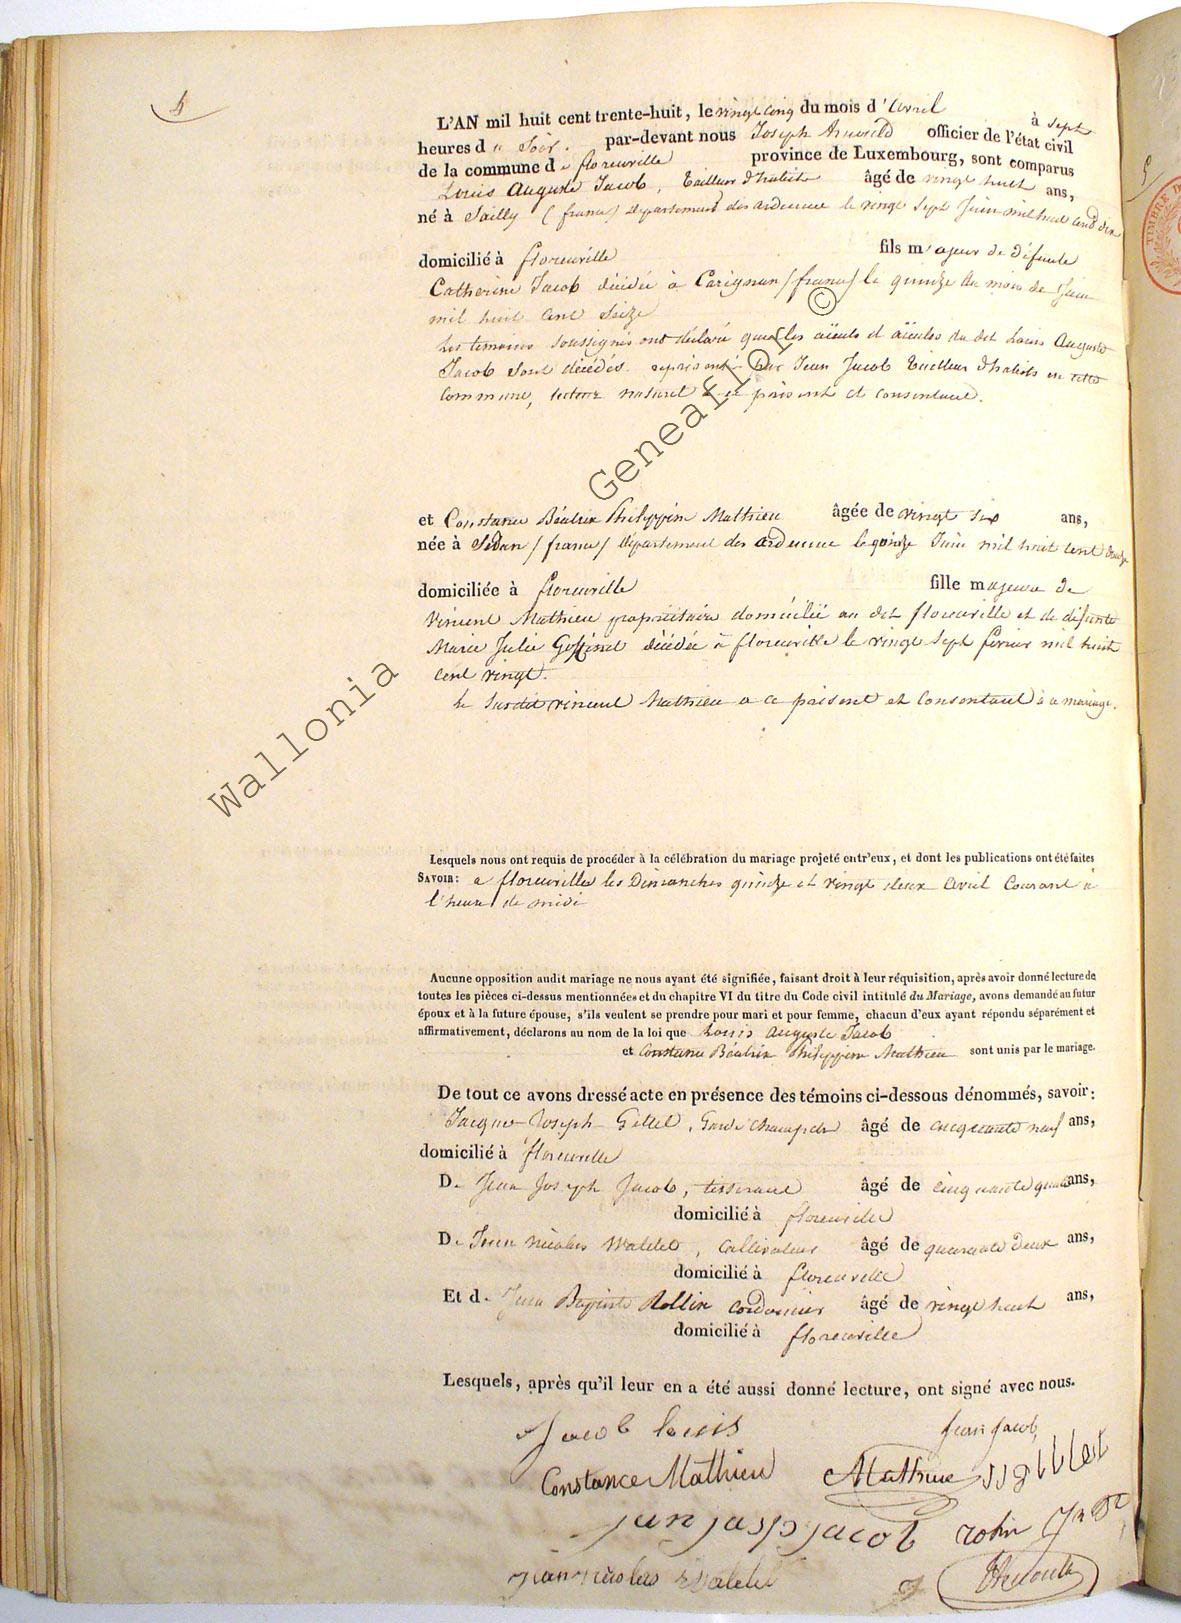 4
L'AN mil huit cent trente-huit, le vingt cinq du mois d'avril à sept
heures du Soir. par-devant nous Joseph officier de l'état civil
de la commune de florenville province de Luxembourg, sont comparus
Louis Auguste Jacob, tailleur d'habits âgé de vingt huit ans,
né à Sailly (france) département des ardenne le vingt sept Juin mil huit cent dix
domicilié à florenville fils majeur de défunte
Catherine Jacob décédée à Carignan (france) le quinze du mois de Juin
mil huit cent seize
les temoins soussignés ont déclaré que les aïeuls et aïeules du dit Louis Auguste
Jacob sont décédés. représenté par Jean Jacob tailleur d'habits en cette
commune, tuteur naturel à ce présent et consentant.
et Constance Béatrix Philippine Mathieu âgée de vingt six ans,
née à Sédan (france) département des ardenne le quinze Juin mil huit cent douze
domiciliée à florenville fille majeure de
Vincent Mathieu propriétaire domicilié au dit florenville et de défunte
Marie Julie décédée à florenville le vingt sept fevrier mil huit
cent vingt.
le susdit vincent Mathieu a ce présent et consentant à ce mariage.
Lesquels nous ont requis de procéder à la célébration du mariage projeté entr'eux, et dont les publications ont été faites
SAVOIR: a florenville les Dimanches quinze et vingt deux avril courant à
l'heure de midi
Aucune opposition audit mariage ne nous ayant été signifiée, faisant droit à leur réquisition, après avoir donné lecture de
toutes les pièces ci-dessus mentionnées et du chapitre VI du titre du Code civil intitulé du Mariage, avons demandé au futur
époux et à la future épouse, s'ils veulent se prendre pour mari et pour femme, chacun d'eux ayant répondu séparément et
affirmativement, déclarons au nom de la loi que Louis Auguste Jacob
et Constance Béatrix Philippine Mathieu sont unis par le mariage.
De tout ce avons dressé acte en présence des témoins ci-dessous dénommés, savoir:
Jacques Joseph Gillet, Garde champetre âgé de cinquante neuf ans,
domicilié à florenville
De Jean Joseph Jacob, tisserand âgé de cinquante quatre ans,
domicilié à florenville
De Jean nicolas Watelet, cultivateur âgé de quarante deux ans,
domicilié à florenville
Et de Jean Baptiste Rollin cordonnier âgé de vingt huit ans,
domicilié à florenville
Lesquels, après qu'il leur en a été aussi donné lecture, ont signé avec nous.
Jacob Louis Jean Jacob
Constance Mathieu Mathieu JJ gillet
jean josep jacob rolin Jn Bte
jean nicolas Watelet
Wallonia Geneaflor ©
TIMBRE